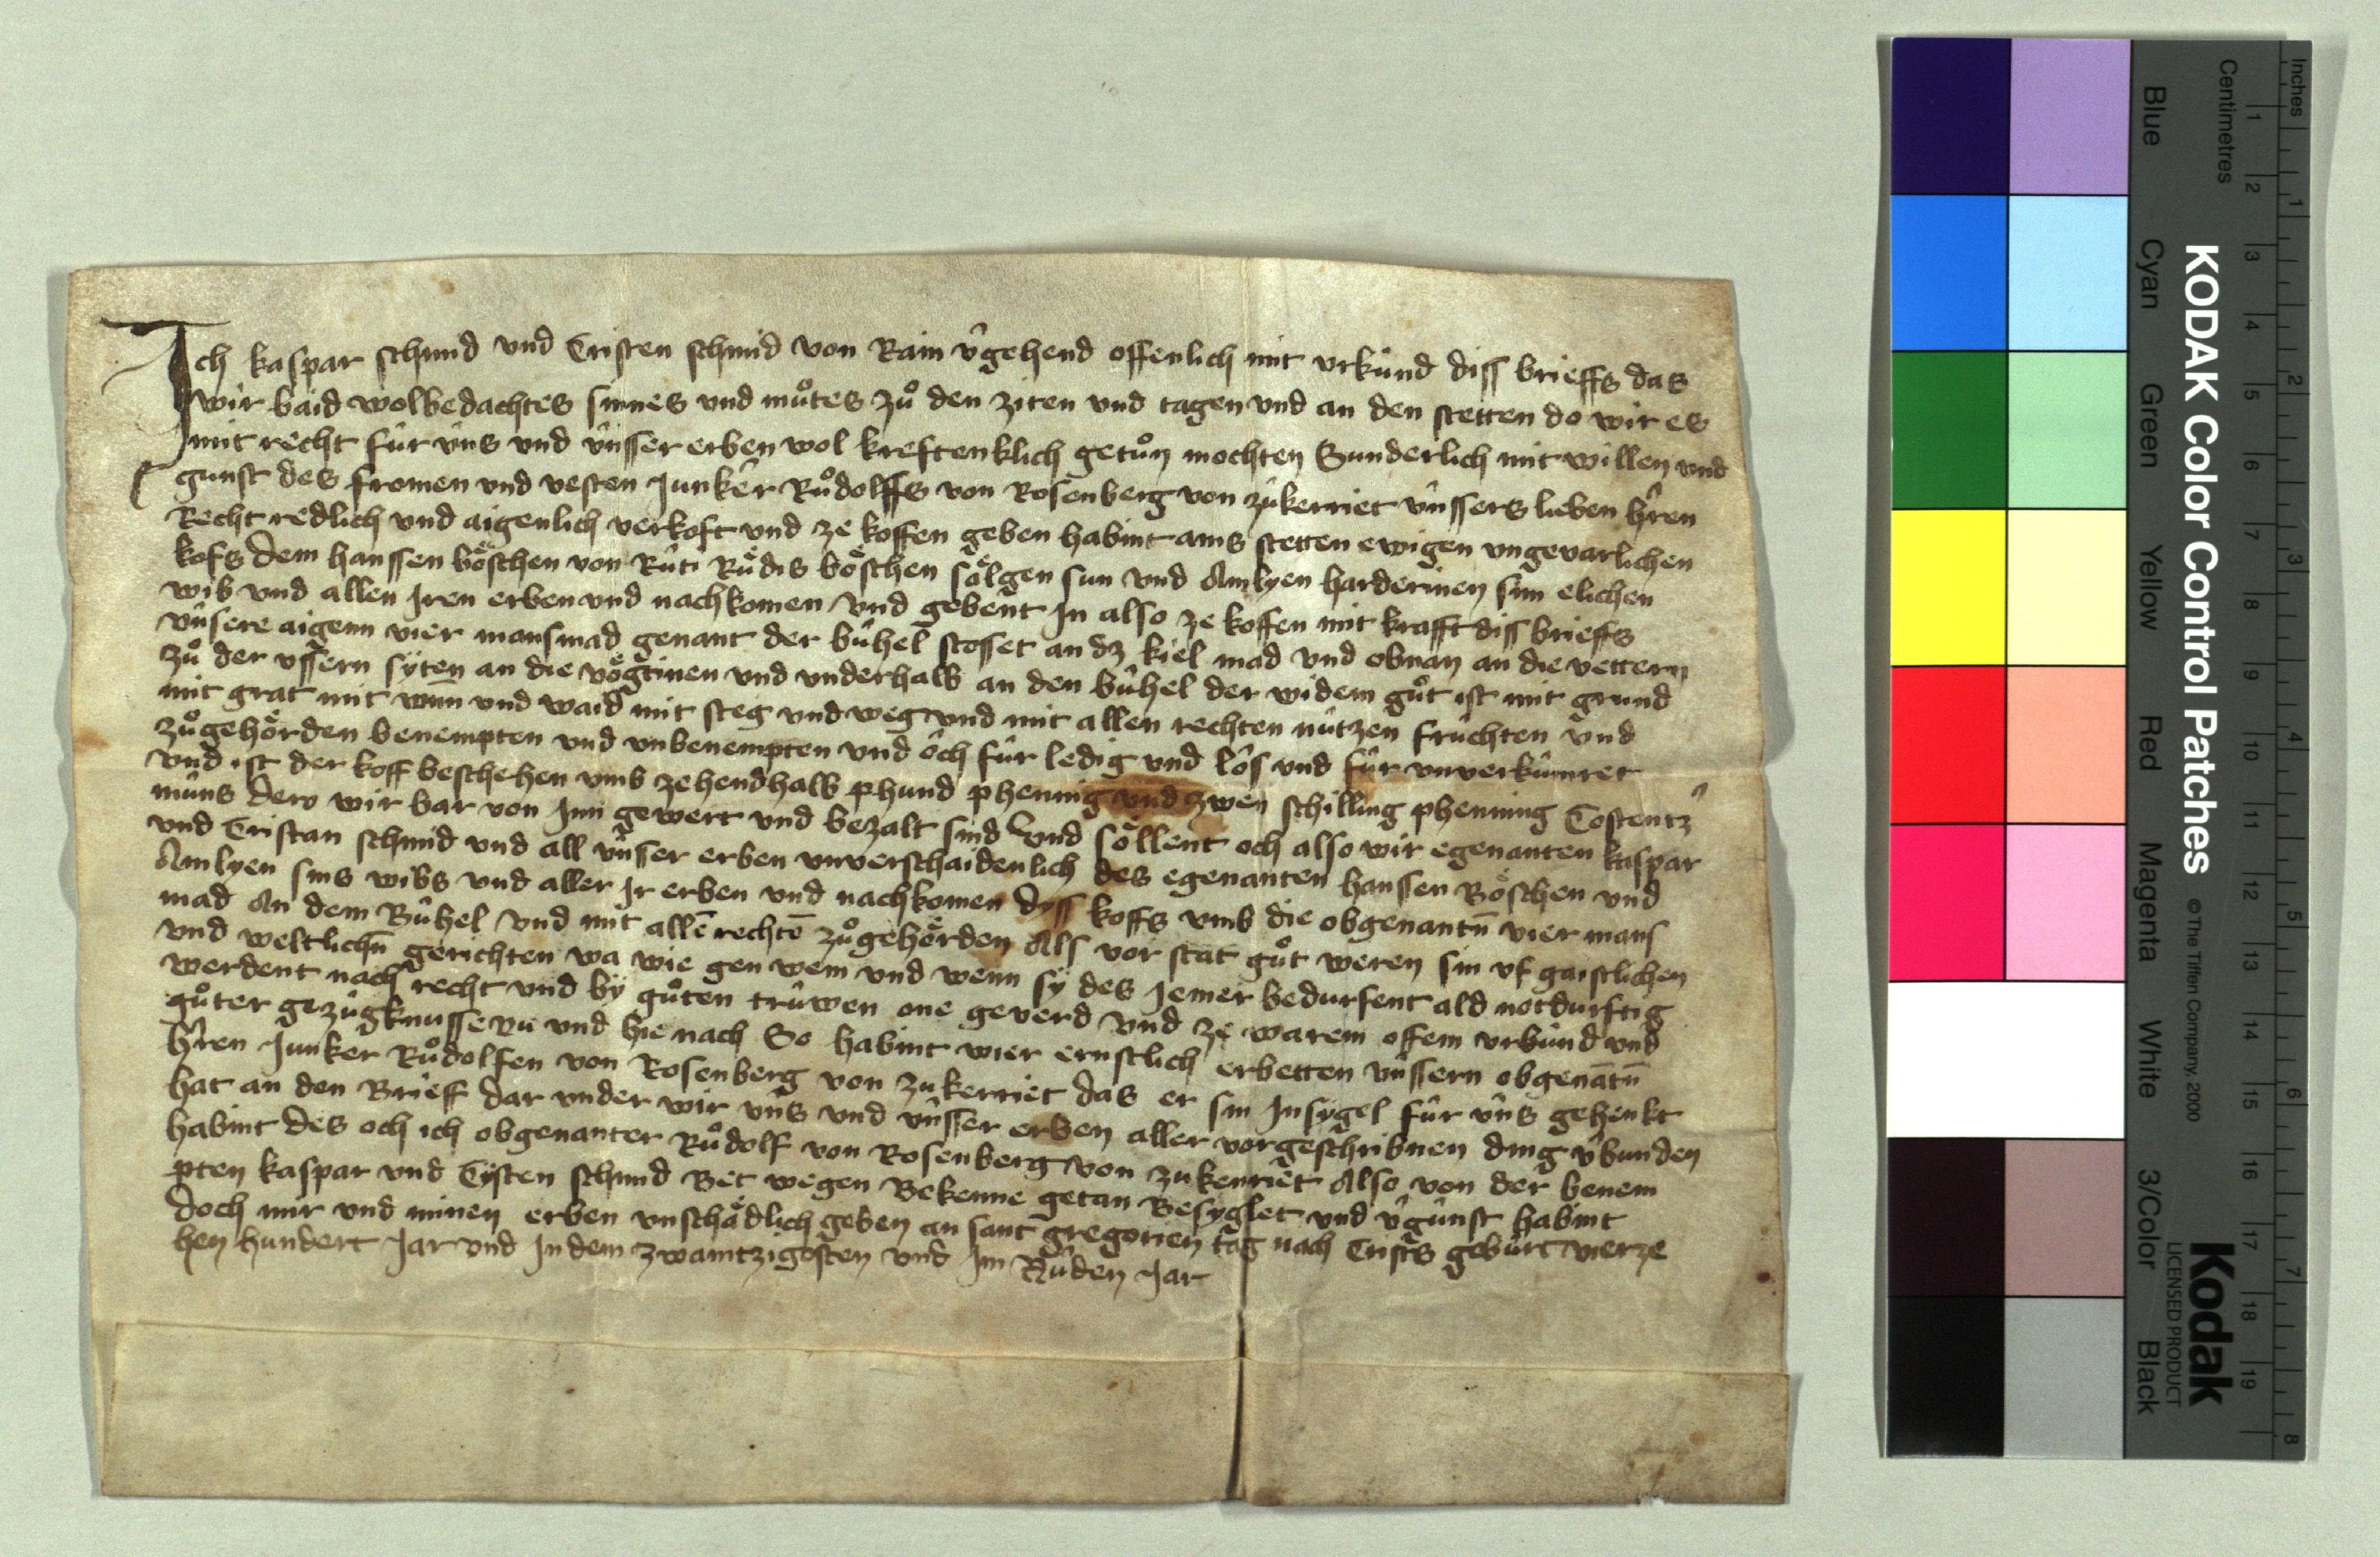 Ich kaspar schmid vnd Cristen schmid von Rain v̂gehend offenlich mit vrkúnd diss brieffs das
wir baid wolbedachtes sinnes vnd můtes zů den ziten vnd tagen vnd an den stetten do wir es
mit recht fúr v́ns vnd v́nsser erben wol kreftenklich getůn mochten Sunderlich mit willen vnd
gunst des fromen vnd vesten Junkêr Růdolffs von Rosenberg von zukerriet v́nssers lieben ĥren
Recht redlich vnd aigenlich verkoft vnd ze koffen geben habint ains stetten ewigen vngevarlichen
kofs dem hanssen bôschen von Rúti Růdis bôschen sålgen sun vnd Amlyen harderinen sim elichen
wib vnd allen Jren erben vnd nachkomen vnd gebent Jn also ze koffen mit krafft diss brieffs
v́nsere aigenn vier mansmad genant der bůhel stosset an dz kiel mad vnd obnan an die vettern
zů der vssern syten an die vôgtinen vnd vnderhalb an den bůhel der widem gůt ist mit grund
mit grat mit wun̄ vnd waid mit steg vnd weg vnd mit allen rechten nútzen fruchten vnd
zůgehôrden benempten vnd vnbenempten vnd ôch fúr ledig vnd lôs vnd fúr vnverkúmret
vnd ist der koff beschehen vmb zehendhalb phund phennig vnd zwen schilling phenning Costentz̕
múns dero wir bar von Jnn gewert vnd bezalt sind Vnd sôllent och also wir egenanten kaspar
vnd Cristan schmid vnd all v́nsser erben vnverschaidenlich des egenanten hanssen Bôschen vnd
Amlyen sins wibs vnd aller Jr erben vnd nachkomen dyss koffs vmb die obgenantn̄ vier mans
mad An dem Bůhel vnd mit allē rechtē zůgehôrden Als vor stat gůt weren sin vf gaistlichen
vnd weltlichn̄ gerichten wa wie gen wem vnd wenn sy des Jemer bedurfent ald notdurftig
werdent nach recht vnd by gůten trúwen one geverd Vnd ze warem offem vrkúnd vnd
gůter gezúgknusse nu vnd hie nach So habint wier ernstlich erbetten v́nssern obgenātn̄
ĥren Junker Růdolfen von Rosenberg von zukerriet das er sin Jnsygel fúr v́ns gehenkt
hat an den Brieff dar vnder wir v́ns vnd v́nsser erben aller vorgeschribnen ding v̂bunden
habint des och ich obgenanter Růdolf von Rosenberg von zukenriet Also von der benem
pten kaspar vnd Cysten schmid Bet wegen Bekenne getan Besyglet vnd v̂gúnst habint
doch mir vnd minen erben vnschådlich geben an sant gregorien tag nach Cristꝰs gebúrt vierze
hen hundert Jar vnd Jn dem zwaintzigosten vnd Jm Núden Jar
Inches 1 2 3 4 5 6 7 8
Centimetres 1 2 3 4 5 6 7 8 9 10 11 12 13 14 15 16 17 18 19
KODAK Color Control Patches © The Tiffen Company, 2000 Kodak LICENSED PRODUCT
Blue Cyan Green Yellow Red Magenta White 3/Color Black